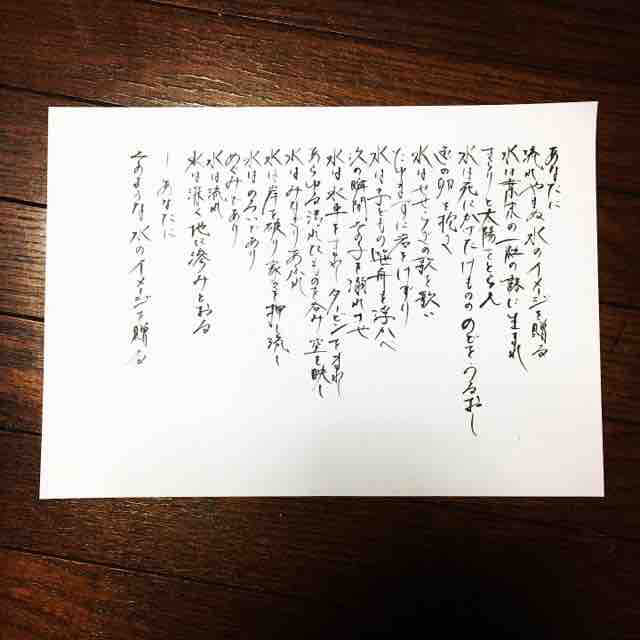 あなたに
流れやまぬ水のイメージを贈る
水は葉末の一粒の露に生まれ
きらりと太陽をとらえ
水は死にかけたけもののどをうるおし
魚の卵を抱き
水はせせらぎの歌を歌い
たゆまずに岩をけずり
水は子どもの笹舟を浮べ
次の瞬間その子を溺れさせ
水は水車をまわしタービンをまわし
あらゆる汚れたものを呑み空を映し
水はみなぎりあふれ
水は岸を破り家々を押し流し
水はのろいであり
めぐみであり
水は流れ
水は深く地に滲みとおる
―あなたに
そのような水のイメージを贈る